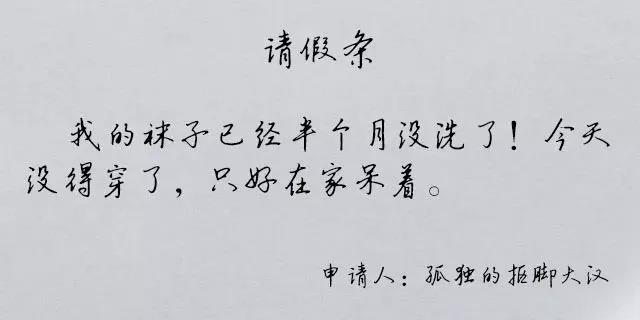 请假条
我的袜子已经半个月没洗了！今天
没得穿了，只好在家呆着。
申请人：孤独的抠脚大汉